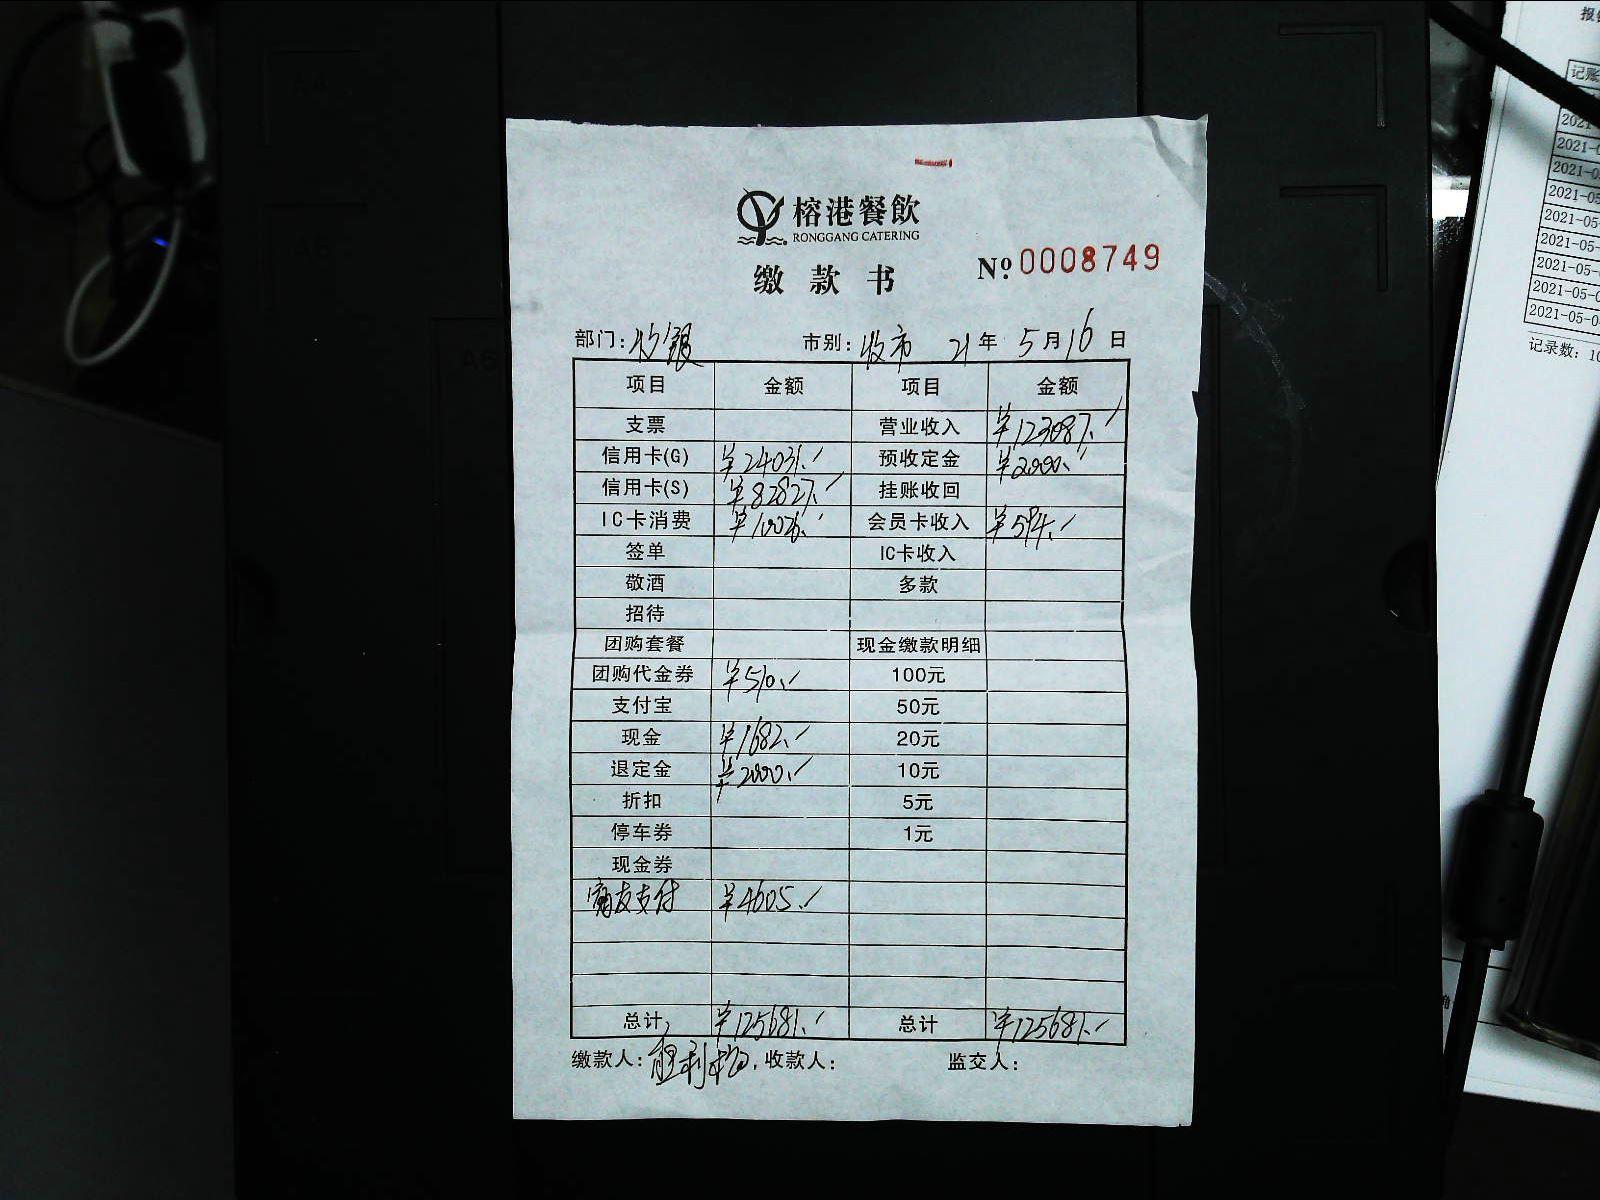 榕港餐飲
RONGGANG CATERING
缴款书
№ 0008749
部门：收银 市别：收市 21年 5月16日
项目 金额 项目 金额
支票 营业收入 ¥123087.
信用卡(G) ¥24031. 预收定金 ¥2000.
信用卡(S) ¥82827. 挂账收回
IC卡消费 ¥10026. 会员卡收入 ¥594.
签单 IC卡收入
敬酒 多款
招待
团购套餐 现金缴款明细
团购代金券 ¥510. 100元
支付宝 50元
现金 ¥1682. 20元
退定金 ¥2000. 10元
折扣 5元
停车券 1元
现金券
支付 ¥4605.
总计 ¥125681. 总计 ¥125681.
缴款人： 收款人： 监交人：
记账
2021-05-0
记录数：10